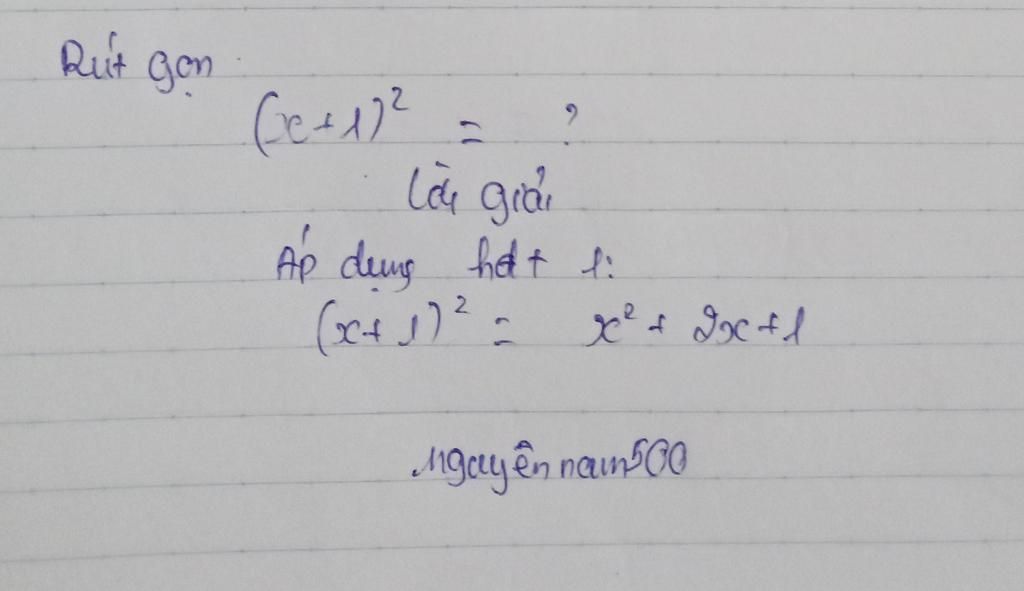 Rút gọn
(x+1)² = ?
Lời giải
Áp dụng hđt 1:
(x+1)² = x² + 2x+1
Nguyênnam500